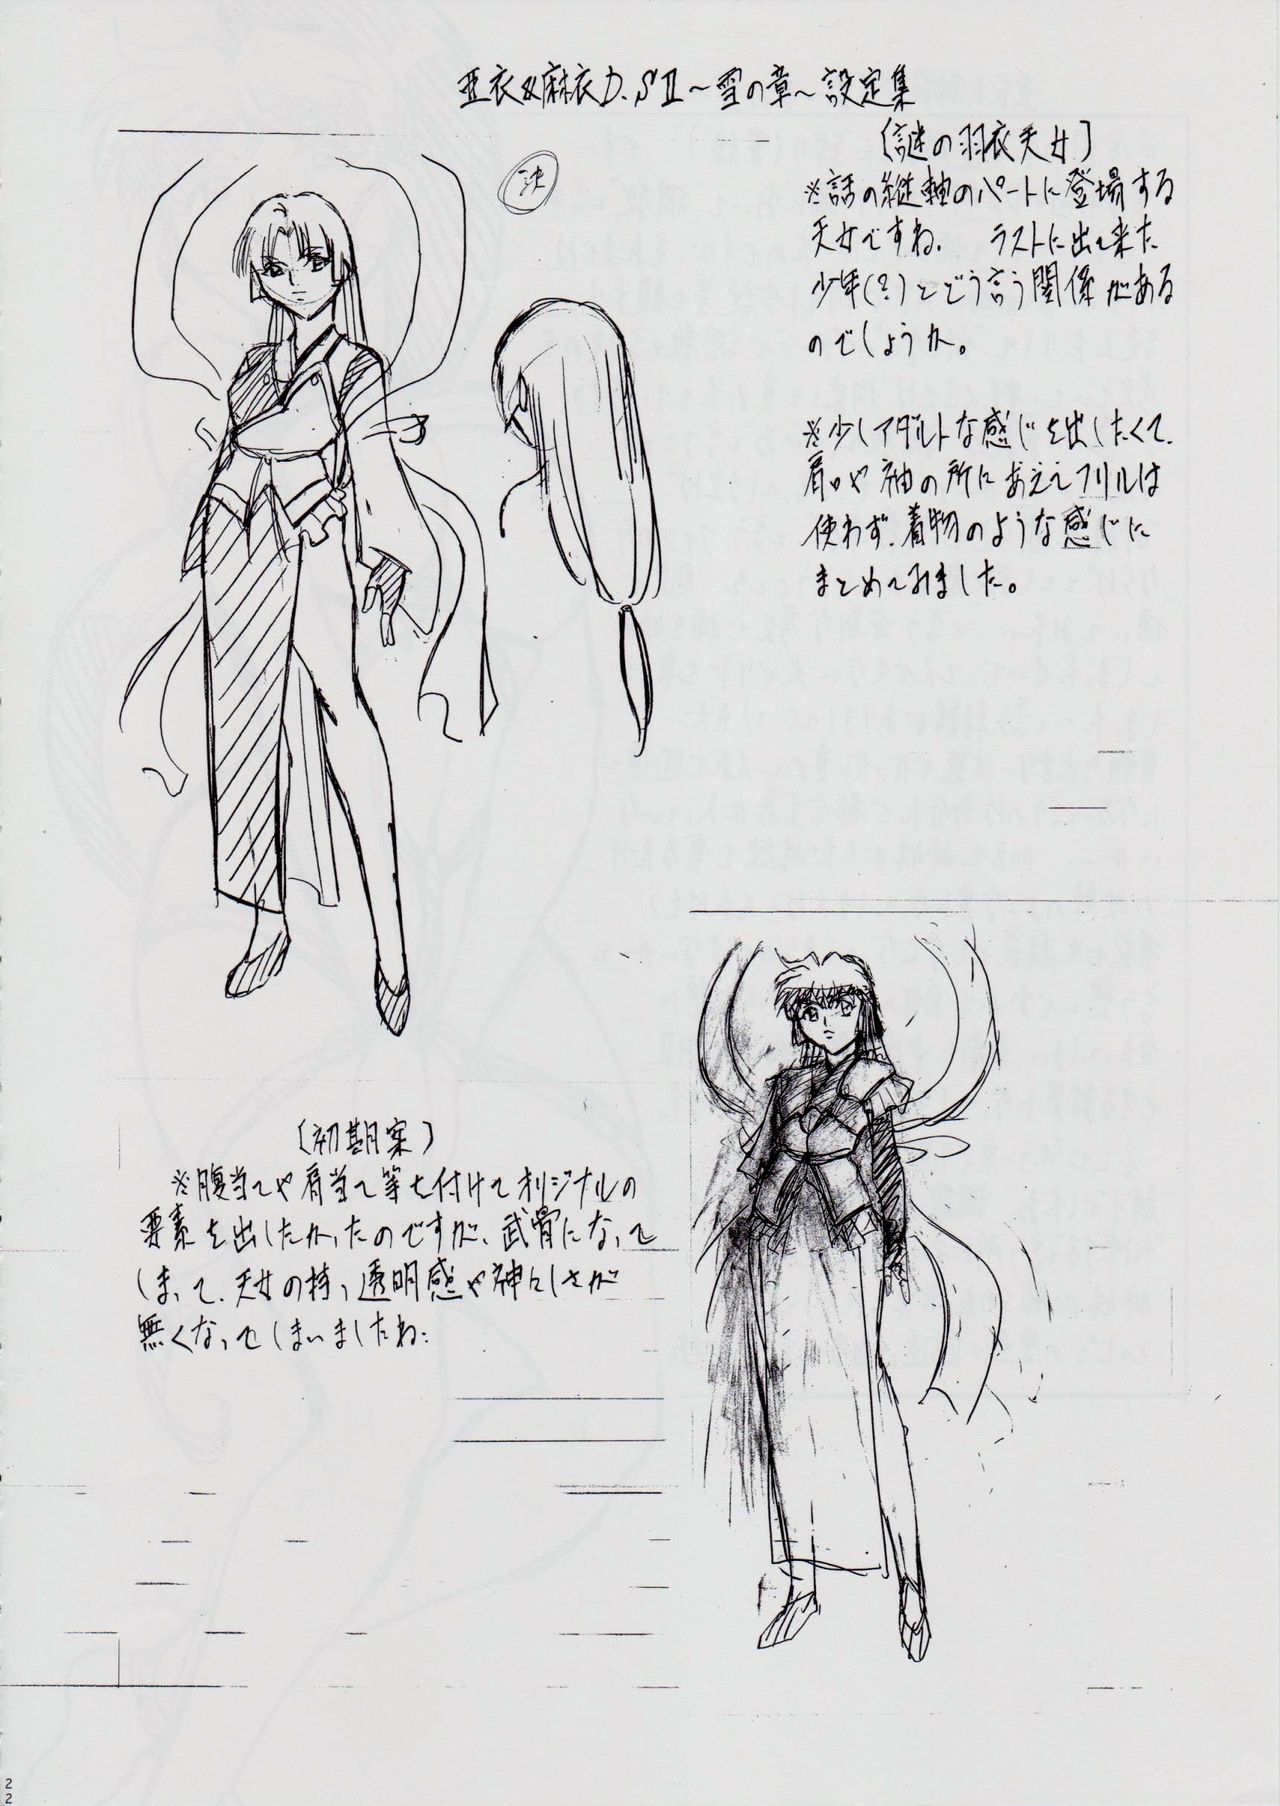 亜衣&麻衣D.SⅡ～雪の章～設定集
決
〔謎の羽衣天女〕
※話の縦軸のパートに登場する
天女ですね. ラストに出て来た
少年(?)とどう言う関係がある
のでしょうか。
※少しアダルトな感じを出したくて、
肩や袖の所にあえてフリルは
使わず、着物のような感じに
まとめてみました。
〔初期案〕
※腹当てや肩当て等を付けてオリジナルの
要素を出したかったのですが、武骨になって
しまって、天女の持つ透明感や神々しさが
無くなってしまいましたね…
22